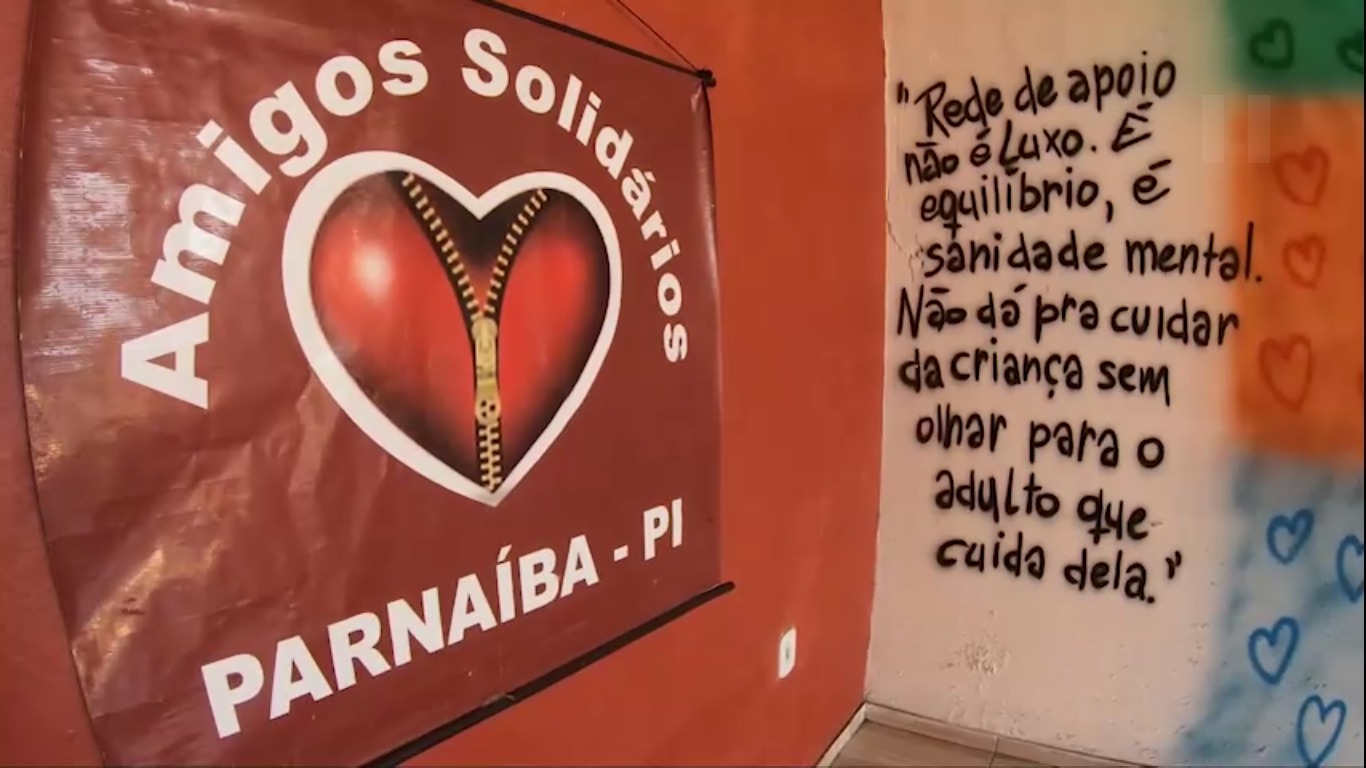 Amigos Solidários
PARNAÍBA - PI
"Rede de apoio
não é Luxo. É
equilíbrio, é
sanidade mental.
Não dá pra cuidar
da criança sem
olhar para o
adulto que
cuida dela."